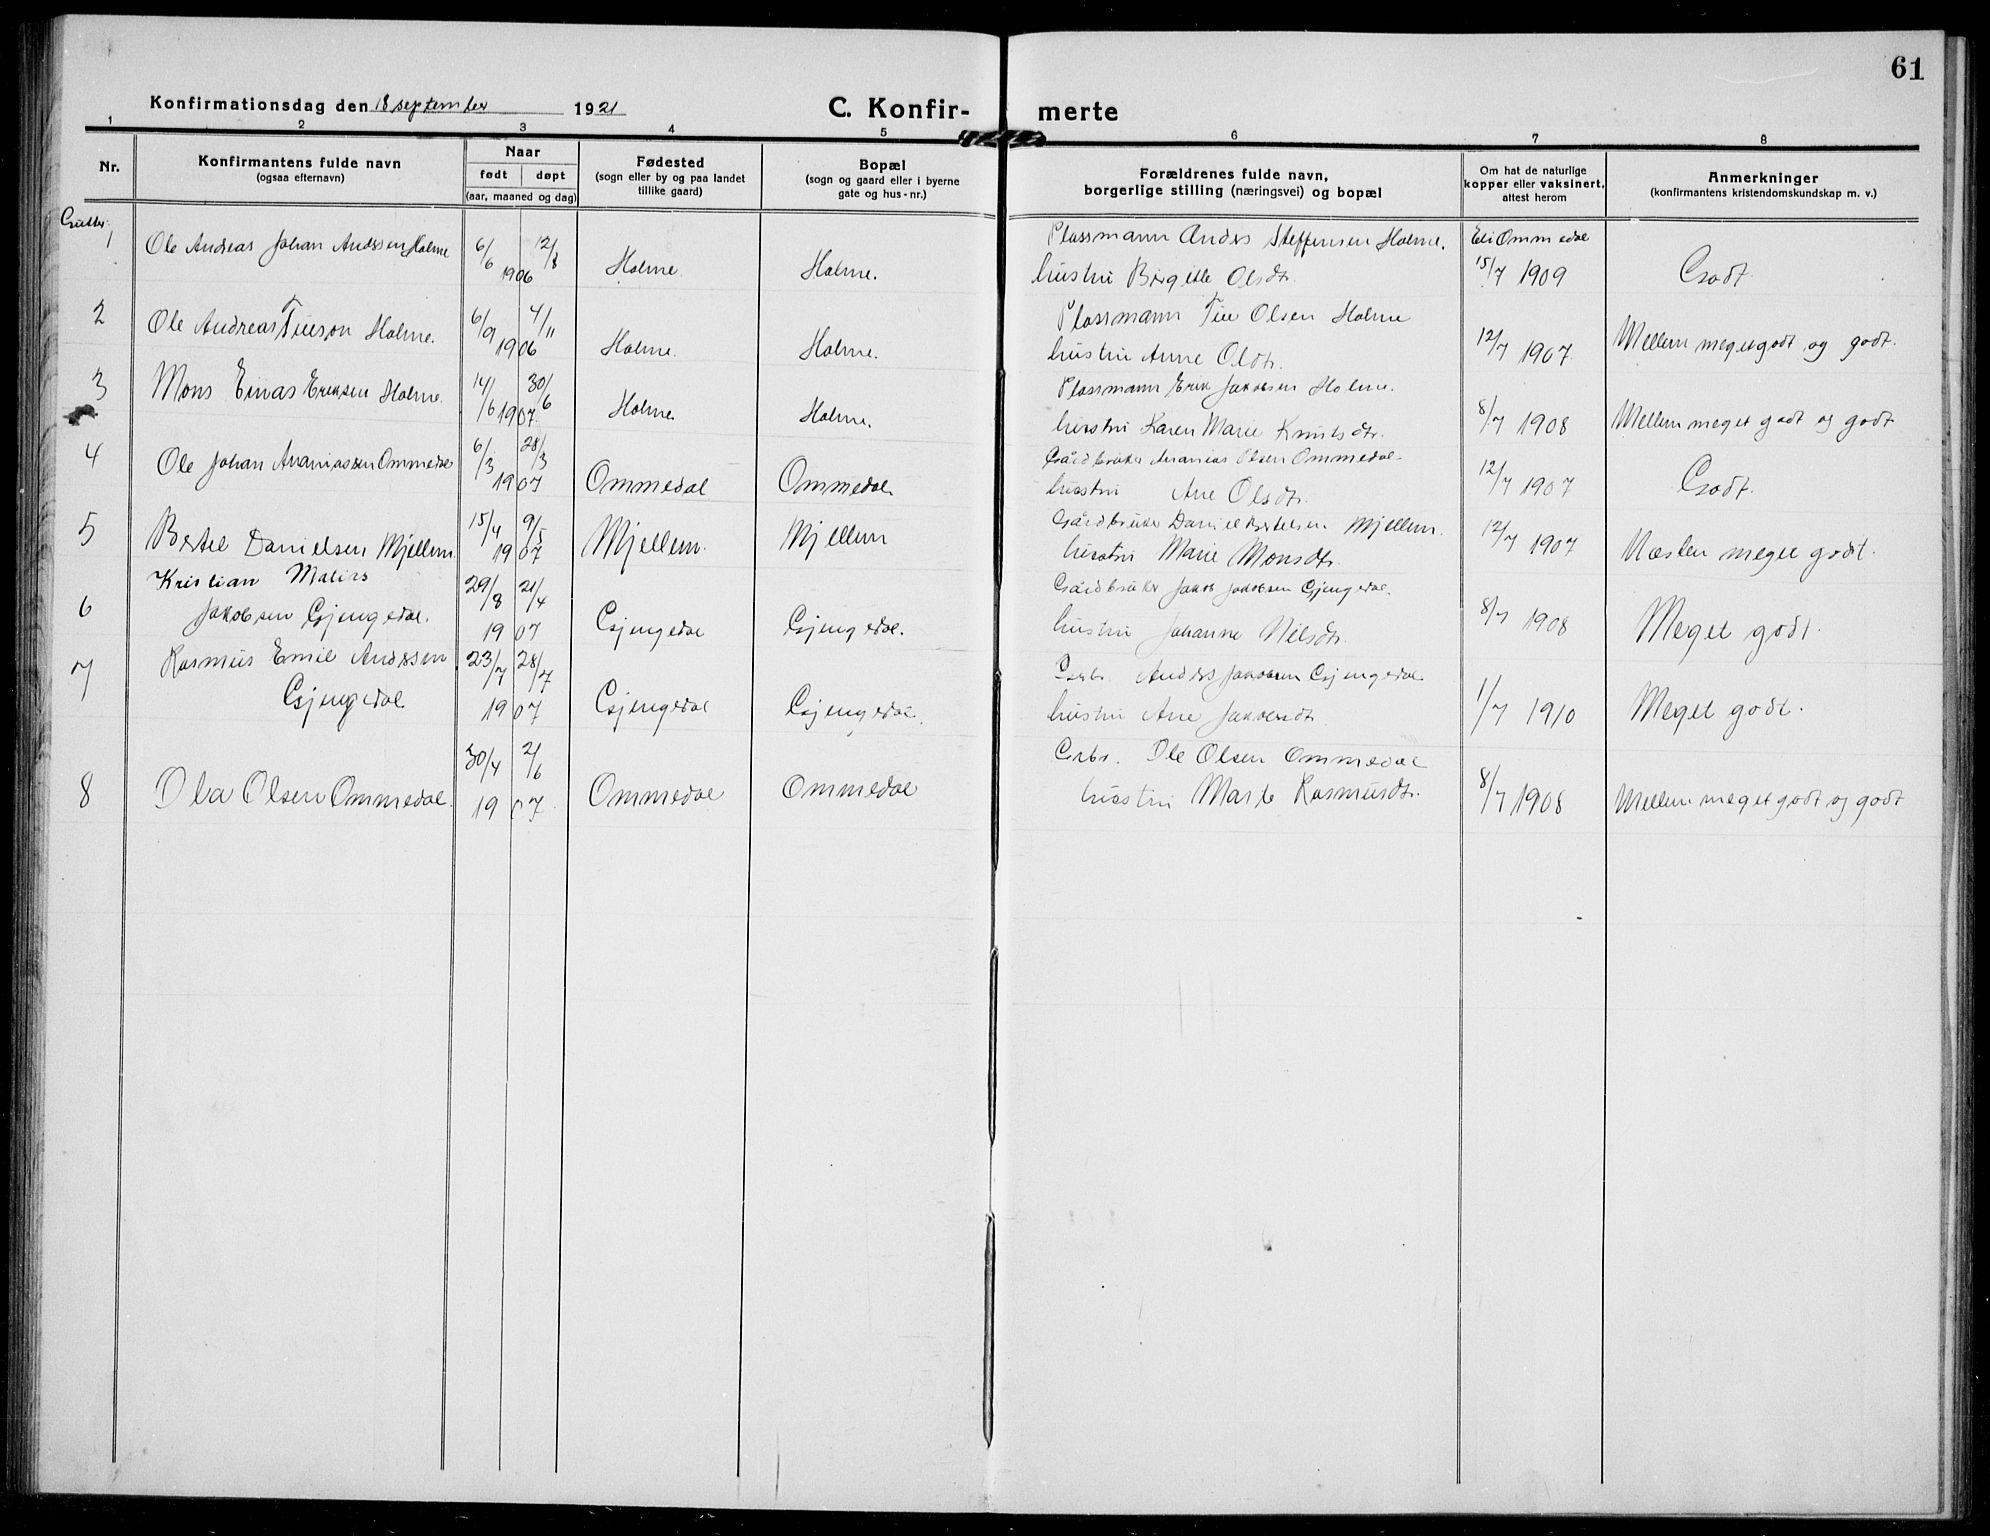 61
Konfirmationsdag den 18 september 1921
C. Konfir- merte
1 2 3 4 5 6 7 8
Nr.
Konfirmantens fulde navn
(ogsaa efternavn)
Naar
født døpt
(aar, maaned og dag)
Fødested
(sogn eller by og paa landet
tillike gaard)
Bopæl
(sogn og gaard eller i byerne
gate og hus-nr.)
Forældrenes fulde navn,
borgerlige stilling (næringsvei) og bopæl
Om hat de naturlige
kopper eller vaksinert,
attest herom
Anmerkninger
(konfirmantens kristendomskundskap m. v.)
Gutter:
1 Ole Andreas Johan Andersen Holme 6/6 12/8 Plassmann Anders Steffensen Holme. Eli Ommedal
1906 Holme. Holme. hustru Birgitte Olsdtr. 15/7 1909 Godt.
2 Ole Andreas Tueson Holme. 6/9 4/11 Plassmann Tue Olsen Holme
1906 Holme. Holme. hustru Anne Oldtr. 12/7 1907. Mellem meget godt og godt.
3 Mons Einar Eriksen Holme. 14/6 30/6 Plassmann Erik Jakobsen Holme.
1907. Holme. Holme. hustru Karen Marie Knutsdtr. 8/7 1908 Mellem meget godt og godt
4 Ole Johan Ananiassen Ommedal 6/3 28/3 Gårdbruker Ananias Olsen Ommedal.
1907 Ommedal Ommedal. hustru Ane Olsdtr. 12/7 1907 Godt.
5 Bertel Danielsen Mjellem. 15/4 9/5 Gårdbruker Daniel Bertelsen Mjellem.
1907 Mjellem. Mjellem hustru Marie Monsdtr. 12/7 1907 Næsten meget godt.
Kristian
6 Jakobsen Gjengedal. 29/8 21/4 Gårdbruker Jakob Jakobsen Gjengedal.
1907 Gjengedal Gjengedal. hustru Johanne Nilsdtr. 8/7 1908 Meget godt.
7 Rasmus Emil Andersen 23/7 28/7 Grbr. Anders Jakobsen Gjengedal
Gjengedal 1907 Gjengedal Gjengedal. hustru Ane Jakobsdtr. 1/7 1910 Meget godt.
30/4 2/6 Grbr. Ole Olsen Ommedal
8 Ola Olsen Ommedal. 1907. Ommedal Ommedal hustru Marte Rasmusdtr. 8/7 1908 Mellem meget godt og godt